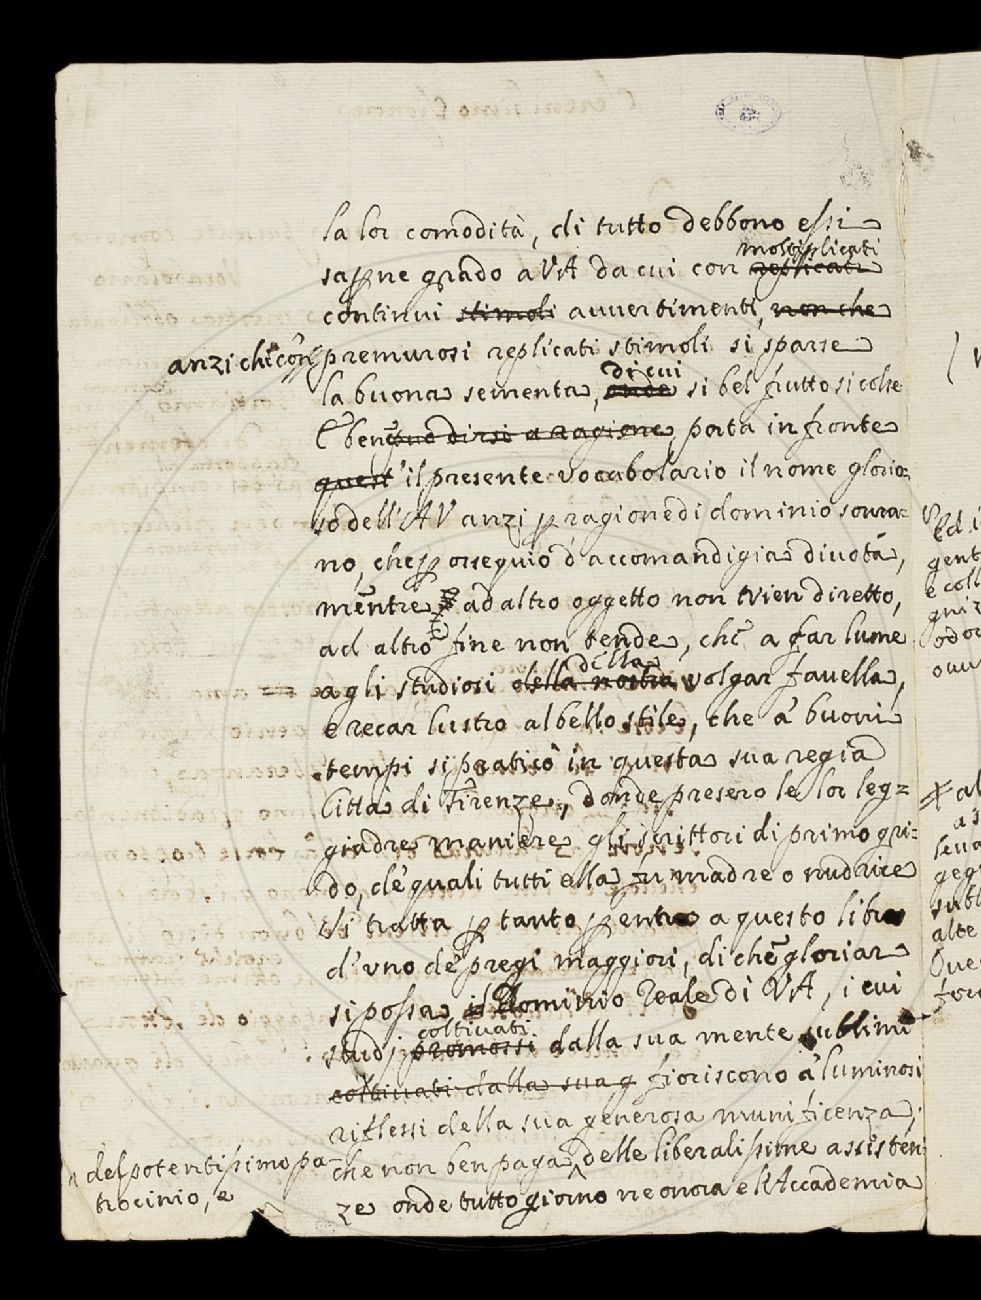 la lor comodità, di tutto debbono essi
moltiplicati
saperne grado a VA da cui con replicati
continui stimoli avvertimenti, non che
anzi che con premurosi replicati stimoli si sparse
di cui
la buona sementa, onde si bel frutto si colse
E ben può dirsi a ragione porta in fronte
quest' il presente Vocabolario il nome glorio=
so dell'AV anzi p ragione di dominio sovra=
no, che p ossequio d'accomandigia divota,
mentre ad altro oggetto non vien diretto,
ad altro fine non tende, che a far lume
della
agli studiosi della nostra volgar favella,
e recar lustro al bello stile, che a' buoni
tempi si praticò in questa sua regia
Città di Firenze, donde presero le lor leg=
giadre maniere gli scrittori di primo gri=
do, de' quali tutti ella fu madre o nudrice
Si tratta p tanto p entro a questo libro
d'uno de' pregi maggiori, di che gloriar
si possa il Dominio Reale di VA, i cui
coltivati
studj promossi dalla sua mente sublime
coltivati dalla sua g fioriscono a' luminosi
riflessi della sua generosa munificenza,
che non ben paga delle liberalissime assisten
ze onde tutto giorno ne onora e l'Accademia
del potentissimo pa-
trocinio, e